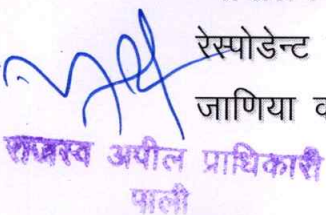 रेस्पोडेन्ट
जाणिया व
राजस्व अपील प्राधिकारी
पाली